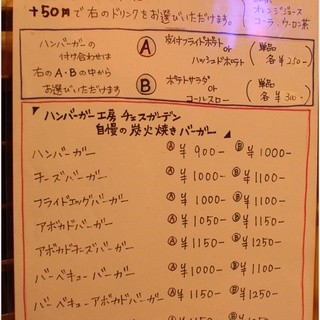 +50円で右のドリンクをお選びいただけます。
オレンジジュース
コーラ、ウーロン茶
ハンバーガーの
付け合わせは
右のA・Bの中から
お選びいただけます
Ⓐ 皮付フライドポテト or ハッシュドポテト (単品 各¥250-)
Ⓑ ポテトサラダ or コールスロー (単品 各¥300-)
ハンバーガー工房 チェスガーデン
自慢の炭火焼きバーガー
ハンバーガー Ⓐ¥900- Ⓑ¥1000-
チーズバーガー Ⓐ¥1000- Ⓑ¥1100-
フライドエッグバーガー Ⓐ¥1000- Ⓑ¥1100-
アボカドバーガー Ⓐ¥1050- Ⓑ¥1150-
アボカドチーズバーガー Ⓐ¥1150- Ⓑ¥1250-
バーベキューバーガー Ⓐ¥1000- Ⓑ¥1100-
バーベキューアボカドバーガー Ⓐ¥1150- Ⓑ¥1250-